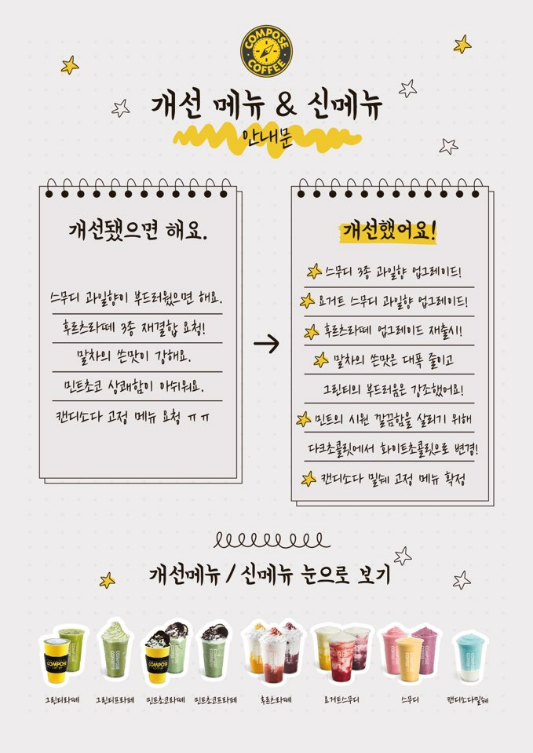 COMPOSE COFFEE
개선 메뉴 & 신메뉴
안내문
개선됐으면 해요.
스무디 과일향이 부드러웠으면 해요.
후르츠라떼 3종 재결합 요청!
말차의 쓴맛이 강해요.
민트초코 상쾌함이 아쉬워요.
캔디소다 고정 메뉴 요청 ㅠㅠ
개선했어요!
스무디 3종 과일향 업그레이드!
요거트 스무디 과일향 업그레이드!
후르츠라떼 업그레이드 재출시!
말차의 쓴맛은 대폭 줄이고
그린티의 부드러움은 강조했어요!
민트의 시원 깔끔함을 살리기 위해
다크초콜릿에서 화이트초콜릿으로 변경!
캔디소다 밀쉐 고정 메뉴 확정
개선메뉴 / 신메뉴 눈으로 보기
그린티라떼
그린티프라페
민트초코라떼
민트초코프라페
후르츠라떼
요거트스무디
스무디
캔디소다밀쉐